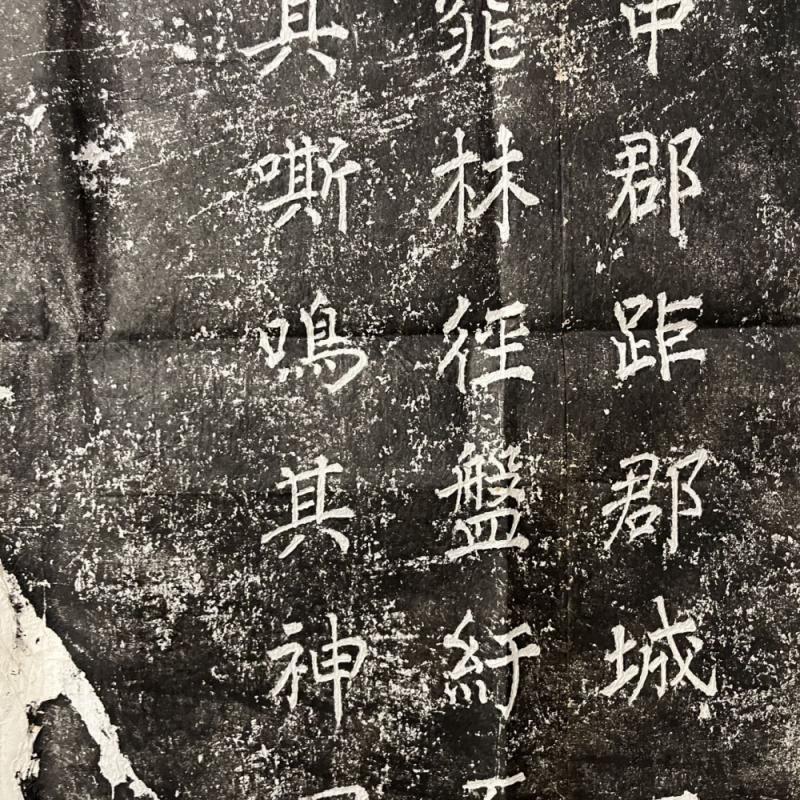 郡距郡城
林徑盤紆
其嘶鳴其神